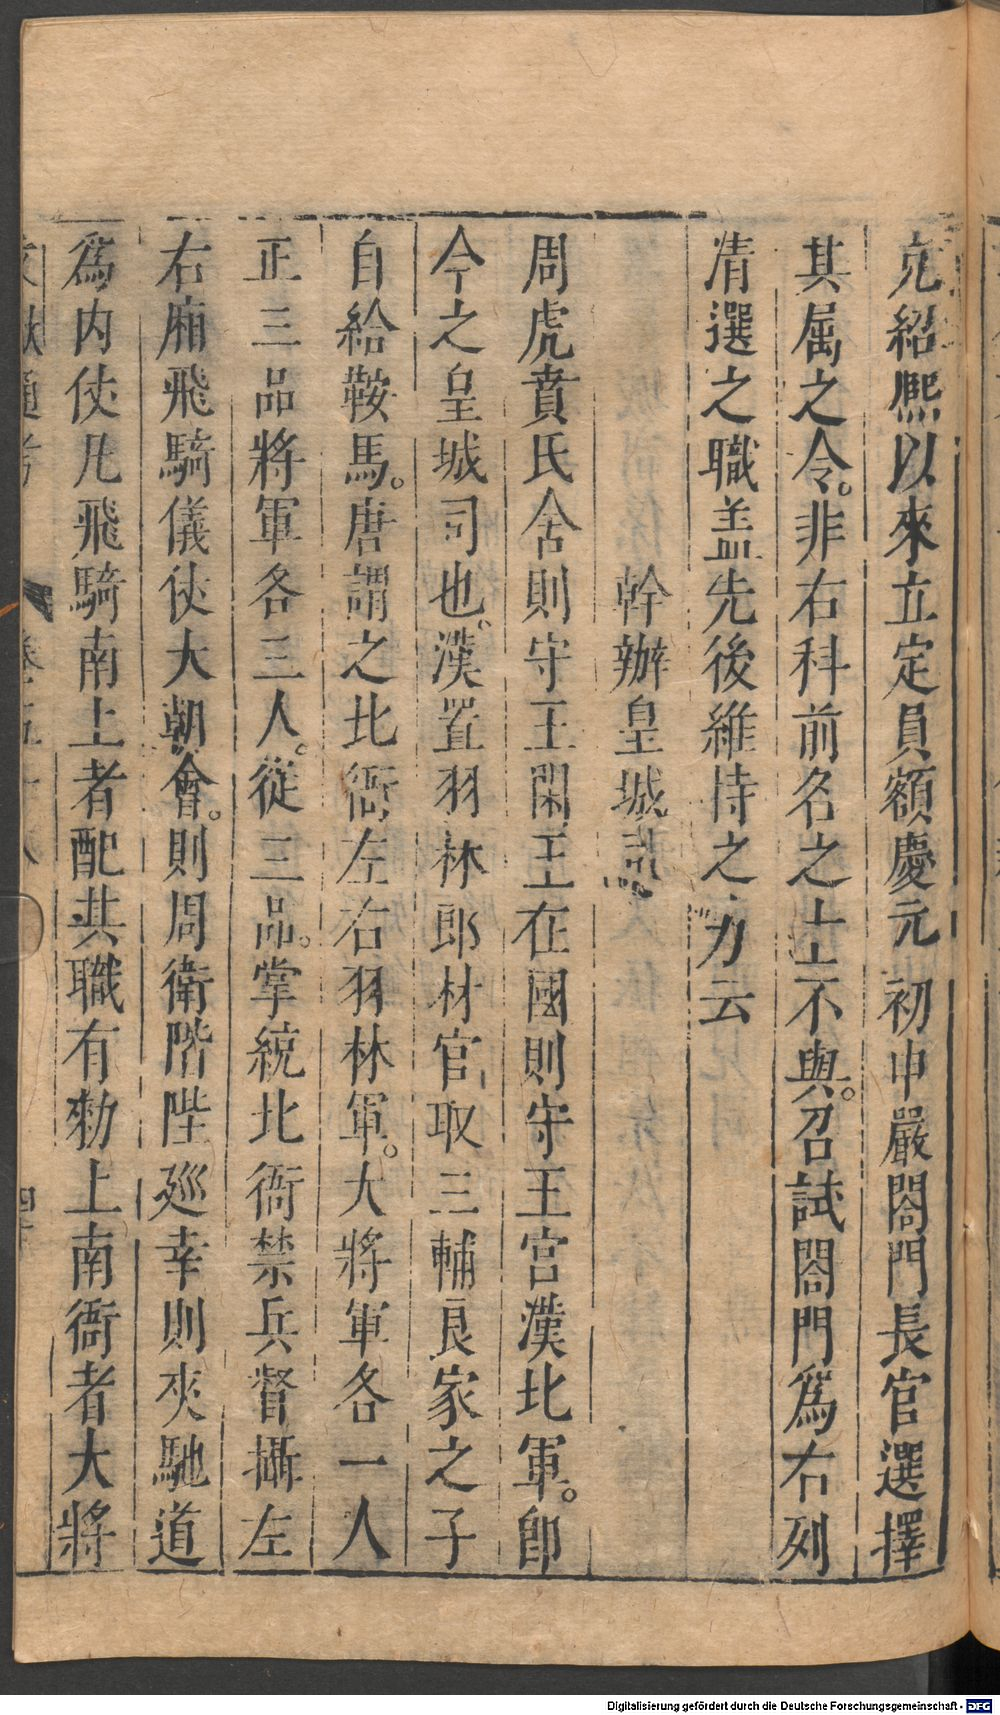 充紹熙以來立定員額慶元初申嚴閤門長官選擇
其屬之令。非右科前名之士不與。召試閤門爲右列
清選之職盖先後維持之力云
幹辦皇城司
周虎賁氏舍則守王閑王在國則守王宮漢北軍。卽
今之皇城司也。漢置羽林郎材官取三輔良家之子
自給鞍馬。唐謂之北衙左右羽林軍。大將軍各一人
正三品將軍各三人。從三品。掌統北衙禁兵督攝左
右廂飛騎儀仗大朝會。則周衛階陛廵幸則夾馳道
爲內仗凡飛騎南上者配其職有勑上南衙者大將
文獻通考
卷五十八
四十
Digitalisierung gefördert durch die Deutsche Forschungsgemeinschaft - DFG